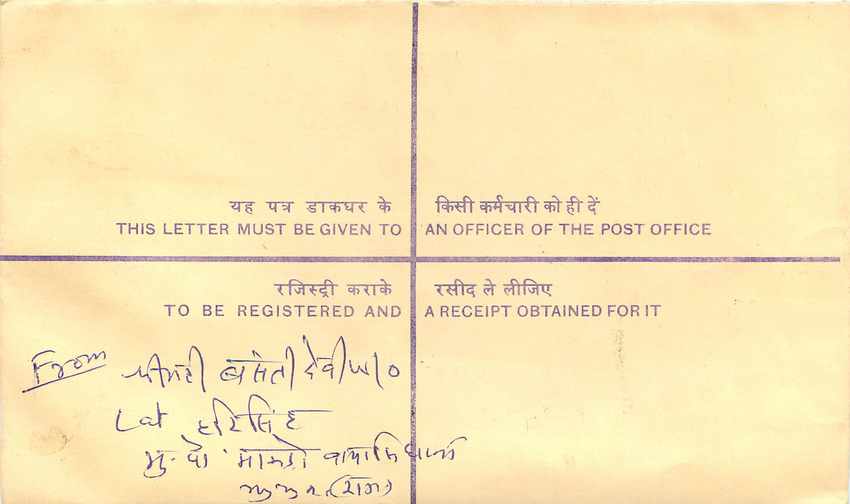 यह पत्र डाकघर के किसी कर्मचारी को ही दें
THIS LETTER MUST BE GIVEN TO AN OFFICER OF THE POST OFFICE
रजिस्ट्री कराके रसीद ले लीजिए
TO BE REGISTERED AND A RECEIPT OBTAINED FOR IT
From श्रीमती बसंती देवी W/O
Lat हरिसिंह
मु. पो.
(राज)